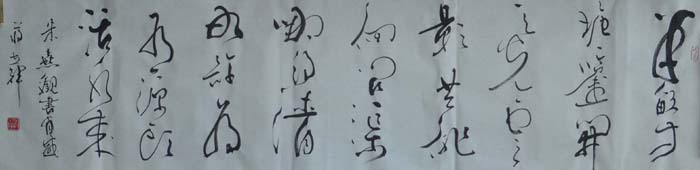 半畝方
塘一鑒開
天光雲
影共徘
徊問渠
哪得清
如許為
有源頭
活水來
朱熹觀書有感